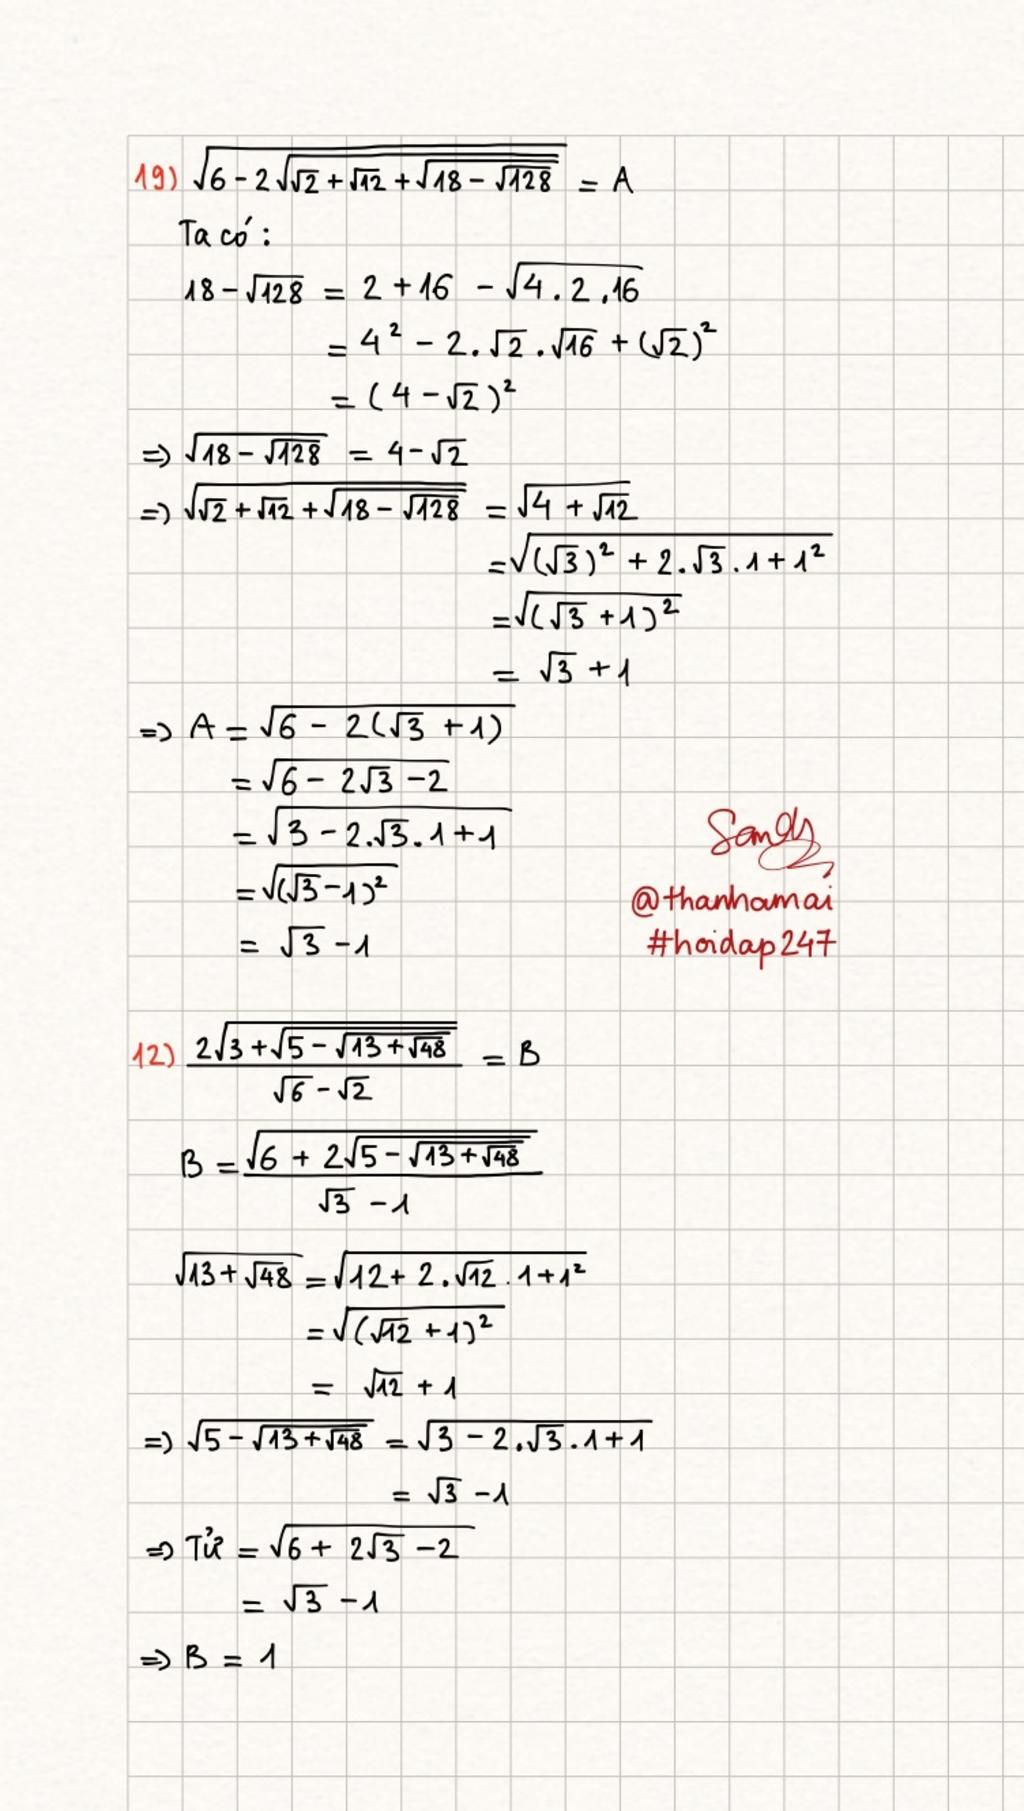 19) √(6 - 2√(√2 + √12 + √(18 - √128))) = A
Ta có:
18 - √128 = 2 + 16 - √(4 . 2 . 16)
= 4² - 2.√2.√16 + (√2)²
= (4 - √2)²
=> √(18 - √128) = 4 - √2
=> √(√2 + √12 + √(18 - √128)) = √(4 + √12)
= √((√3)² + 2.√3.1 + 1²)
= √((√3 + 1)²)
= √3 + 1
=> A = √(6 - 2(√3 + 1))
= √(6 - 2√3 - 2)
= √(3 - 2.√3.1 + 1)
= √((√3 - 1)²)
= √3 - 1
Sandy
@thanhamai
#hoidap247
12) (2√(3 + √(5 - √(13 + √48))))/(√6 - √2) = B
B = (√(6 + 2√(5 - √(13 + √48))))/(√3 - 1)
√(13 + √48) = √(12 + 2.√12.1 + 1²)
= √((√12 + 1)²)
= √12 + 1
=> √(5 - √(13 + √48)) = √(3 - 2.√3.1 + 1)
= √3 - 1
=> Tử = √(6 + 2√3 - 2)
= √3 - 1
=> B = 1